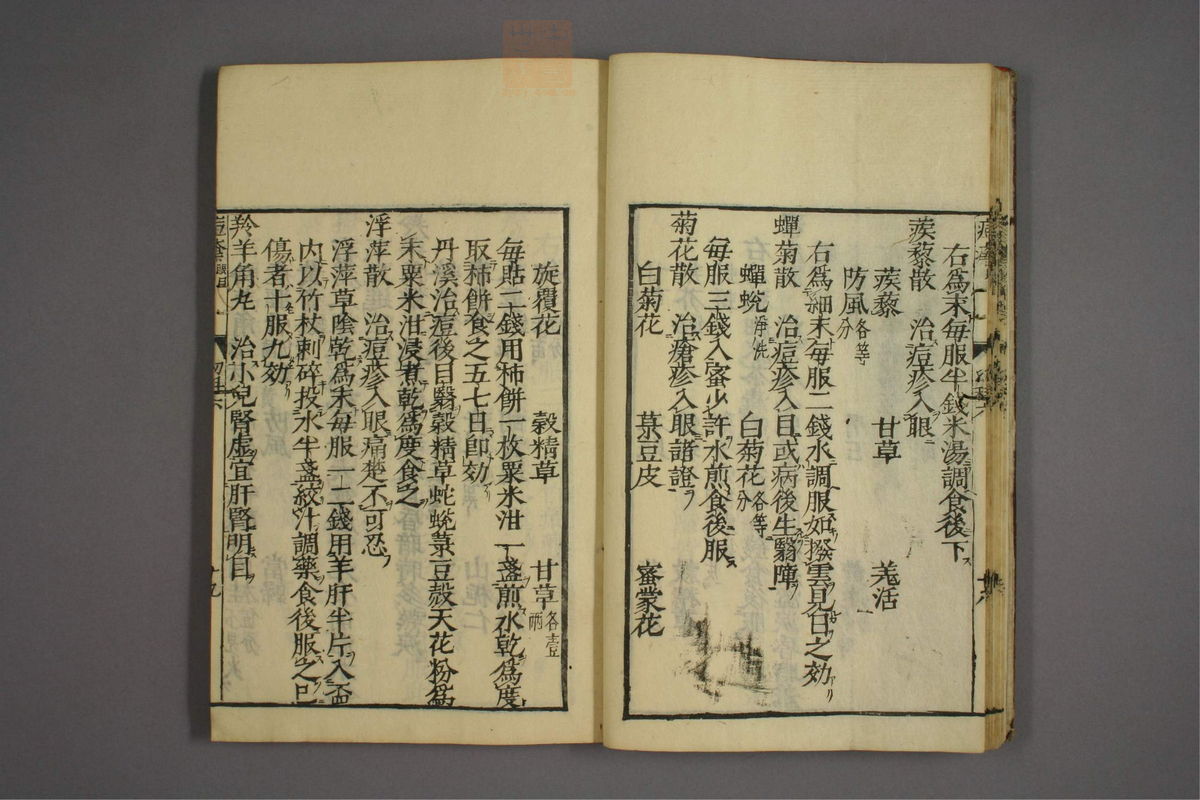 右爲末每服半錢米湯調食後下
蒺藜散 治痘疹入眼
蒺藜 甘草 羗活
防風各等分
右爲細末每服二錢水調服如撥雲見日之効
蟬菊散 治痘疹入目或病後生翳障
蟬蛻淨洗 白菊花各等分
每服三錢入蜜少許水煎食後服
菊花散 治瘡疹入眼諸證
白菊花 菉豆皮 蜜蒙花
旋覆花 穀精草 甘草各壹兩
每貼二錢用柿餅一枚粟米泔一盞煎水乾爲度
取柿餅食之五七日卽効
丹溪治痘後目翳穀精草蛇蛻菉豆殼天花粉爲
末粟米泔浸煮乾爲度食之
浮萍散 治痘疹入眼痛楚不可忍
浮萍草陰乾爲末每服一二錢用羊肝半片入盃
內以竹杖刺碎投水半盞絞汁調藥食後服之已
傷者十服九効
羚羊角丸 治小兒腎虛宜肝腎明目